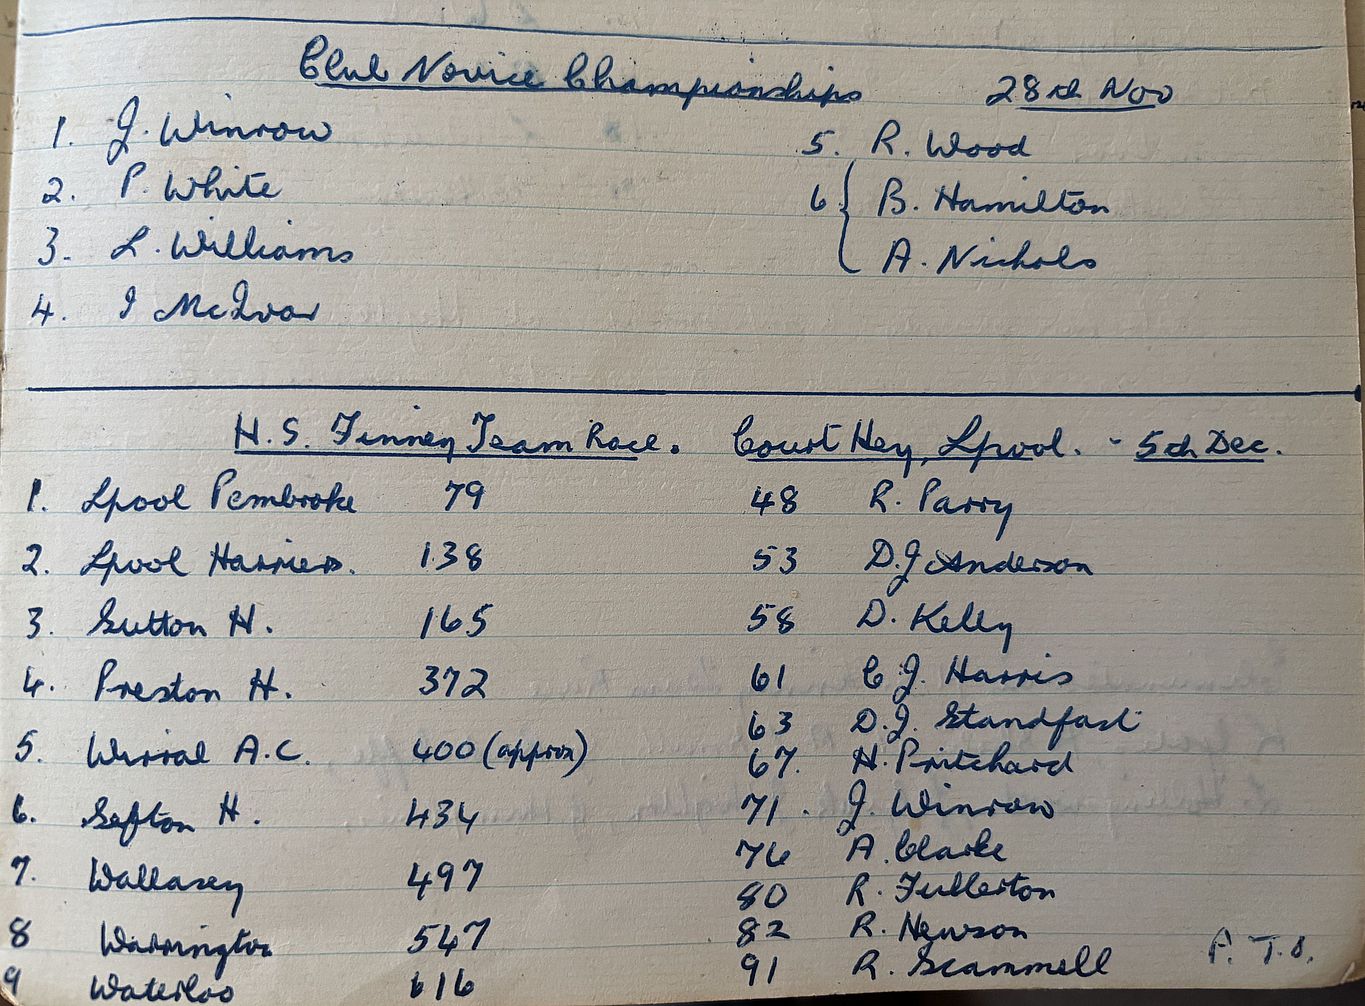 Club Novice Championships 28th Nov
1. J. Winrow
2. P. White
3. L. Williams
4. I McIvor
5. R. Wood
6 { B. Hamilton
A. Nichols
H.S. Finney Team Race. Court Hey, Lpool. - 5th Dec.
1. Lpool Pembroke 79
2. Lpool Harriers. 138
3. Sutton H. 165
4. Preston H. 372
5. Wirral A.C. 400 (approx)
6. Sefton H. 434
7. Wallasey 497
8 Warrington 547
9 Waterloo 616
48 R. Parry
53 D.J Anderson
58 D. Kelly
61 C.J. Harris
63 D.J. Standfast
67. H. Pritchard
71. J. Winrow
76 A. Clarke
80 R. Fullerton
82 R. Hewson
91 R. Scammell
P.T.O.